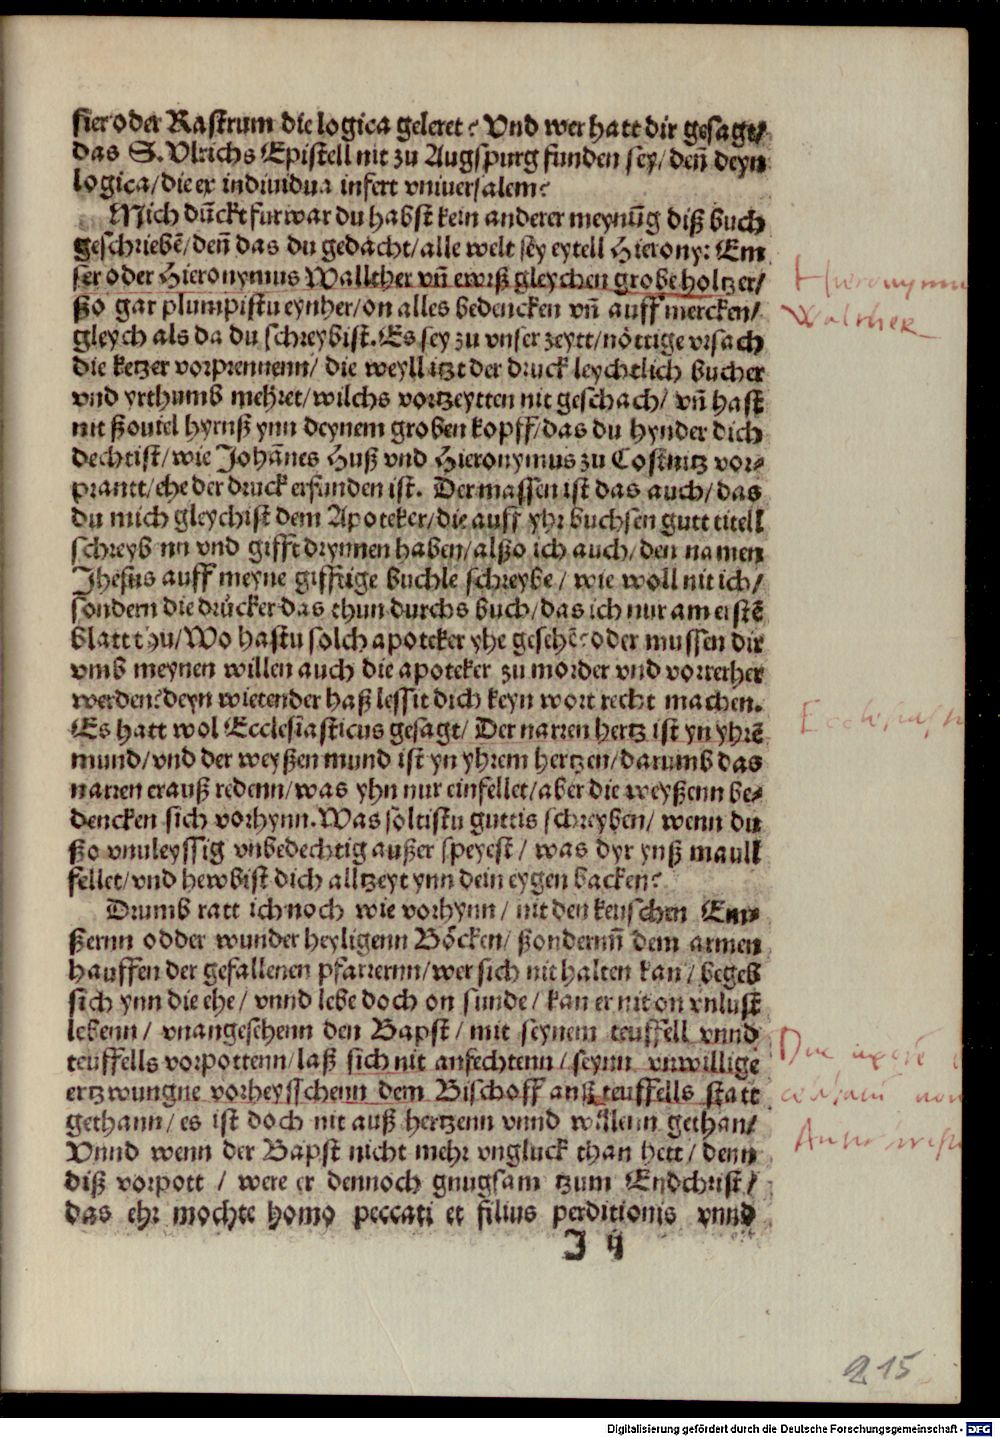 sier oder Rastrum die logica geleret? Vnd wer hatt dir gesagt/
das S. Vlrichs Epistell nit zu Augspurg funden sey/ deñ deyn
logica/ die ex indiuidua infert vniuersalem?
Mich dũckt furwar du habst kein anderer meynũg diß buch
geschriebẽ/ deñ das du gedacht/ alle welt sey eytell Hierony: Em
ser oder Hieronymus Wallcher vñ ewrß gleychen grobe holtzer/
ßo gar plumpistu eynher/ on alles bedencken vñ auff mercken/
gleych als da du schreybist. Es sey zu vnser zeytt/ nöttige vrsach
die ketzer vorprennenn/ die weyll itzt der druck leychtlich bucher
vnd yrthumb mehret/ wilchs vortzeytten nit geschach/ vñ hast
nit ßouiel hyrnß ynn deynem groben kopff/ das du hynder dich
dechtist/ wie Johãnes Huß vnd Hieronymus zu Costnitz vor-
prantt/ ehe der druck erfunden ist. Der massen ist das auch/ das
du mich gleychist dem Apoteker/ die auff yhr buchsen gutt titell
schreyb nn vnd gifft drynnen haben/ alßo ich auch/ den namen
Jhesus auff meyne gifftige buchle schreybe/ wie woll nit ich/
sondern die drucker das thun durchs buch/ das ich nur am erstẽ
blatt thu/ Wo hastu solch apoteker yhe gesehẽ? oder mussen dir
vmb meynen willen auch die apoteker zu morder vnd vorrether
werden? deyn wietender haß lessit dich keyn wort recht machen.
Es hatt wol Ecclesiasticus gesagt/ Der narren hertz ist yn yhrẽ
mund/ vnd der weyßen mund ist yn yhrem hertzen/ darumb das
narren erauß redenn/ was yhn nur einfellet/ aber die weyßenn be-
dencken sich vorhynn. Was soltistu guttis schreyben/ wenn du
ßo vnuleyssig vnbedechtig außer speyest/ was dyr ynß maull
fellet/ vnd hewbist dich alltzeyt ynn dein eygen backen?
Drumb ratt ich noch wie vorhynn/ nit den keuschen Em-
ßernn odder wunder heyligenn Böcken/ ßondernñ dem armen
hauffen der gefallenen pfarrernn/ wer sich nit halten kan/ begeb
sich ynn die ehe/ vnnd lebe doch on sunde/ kan er nit on vnlust
lebenn/ vnangesehenn den Bapst/ mit seynem teuffell vnnd
teuffells vorpottenn/ laß sich nit anfechtenn/ seynn vnwillige
ertzwungne vorheysschenn dem Bischoff anß teuffells statt
gethann/ es ist doch nit auß hertzenn vnnd willenn gethan/
Vnnd wenn der Bapst nicht mehr vngluck than hett/ denn
diß vorpott / were er dennoch gnugsam tzum Endchrist/
das ehr mochte homo peccati et filius perditionis vnnd
J ij
Hieronymus
Walcher
215
Digitalisierung gefördert durch die Deutsche Forschungsgemeinschaft - DFG